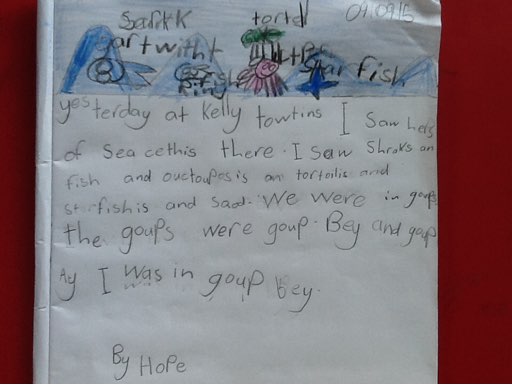 Sarkk tortel 09.09/15
artwitht
fishe star fish
yesterday at Kelly towtins I Saw hers
of Sea cethis there. I saw Shroks an
fish and ouctoupos is an tortoilis and
starfishis and Sad. We were in goups
the goups were goup. Bey and goup
Ay I was in goup bey.
By Hope